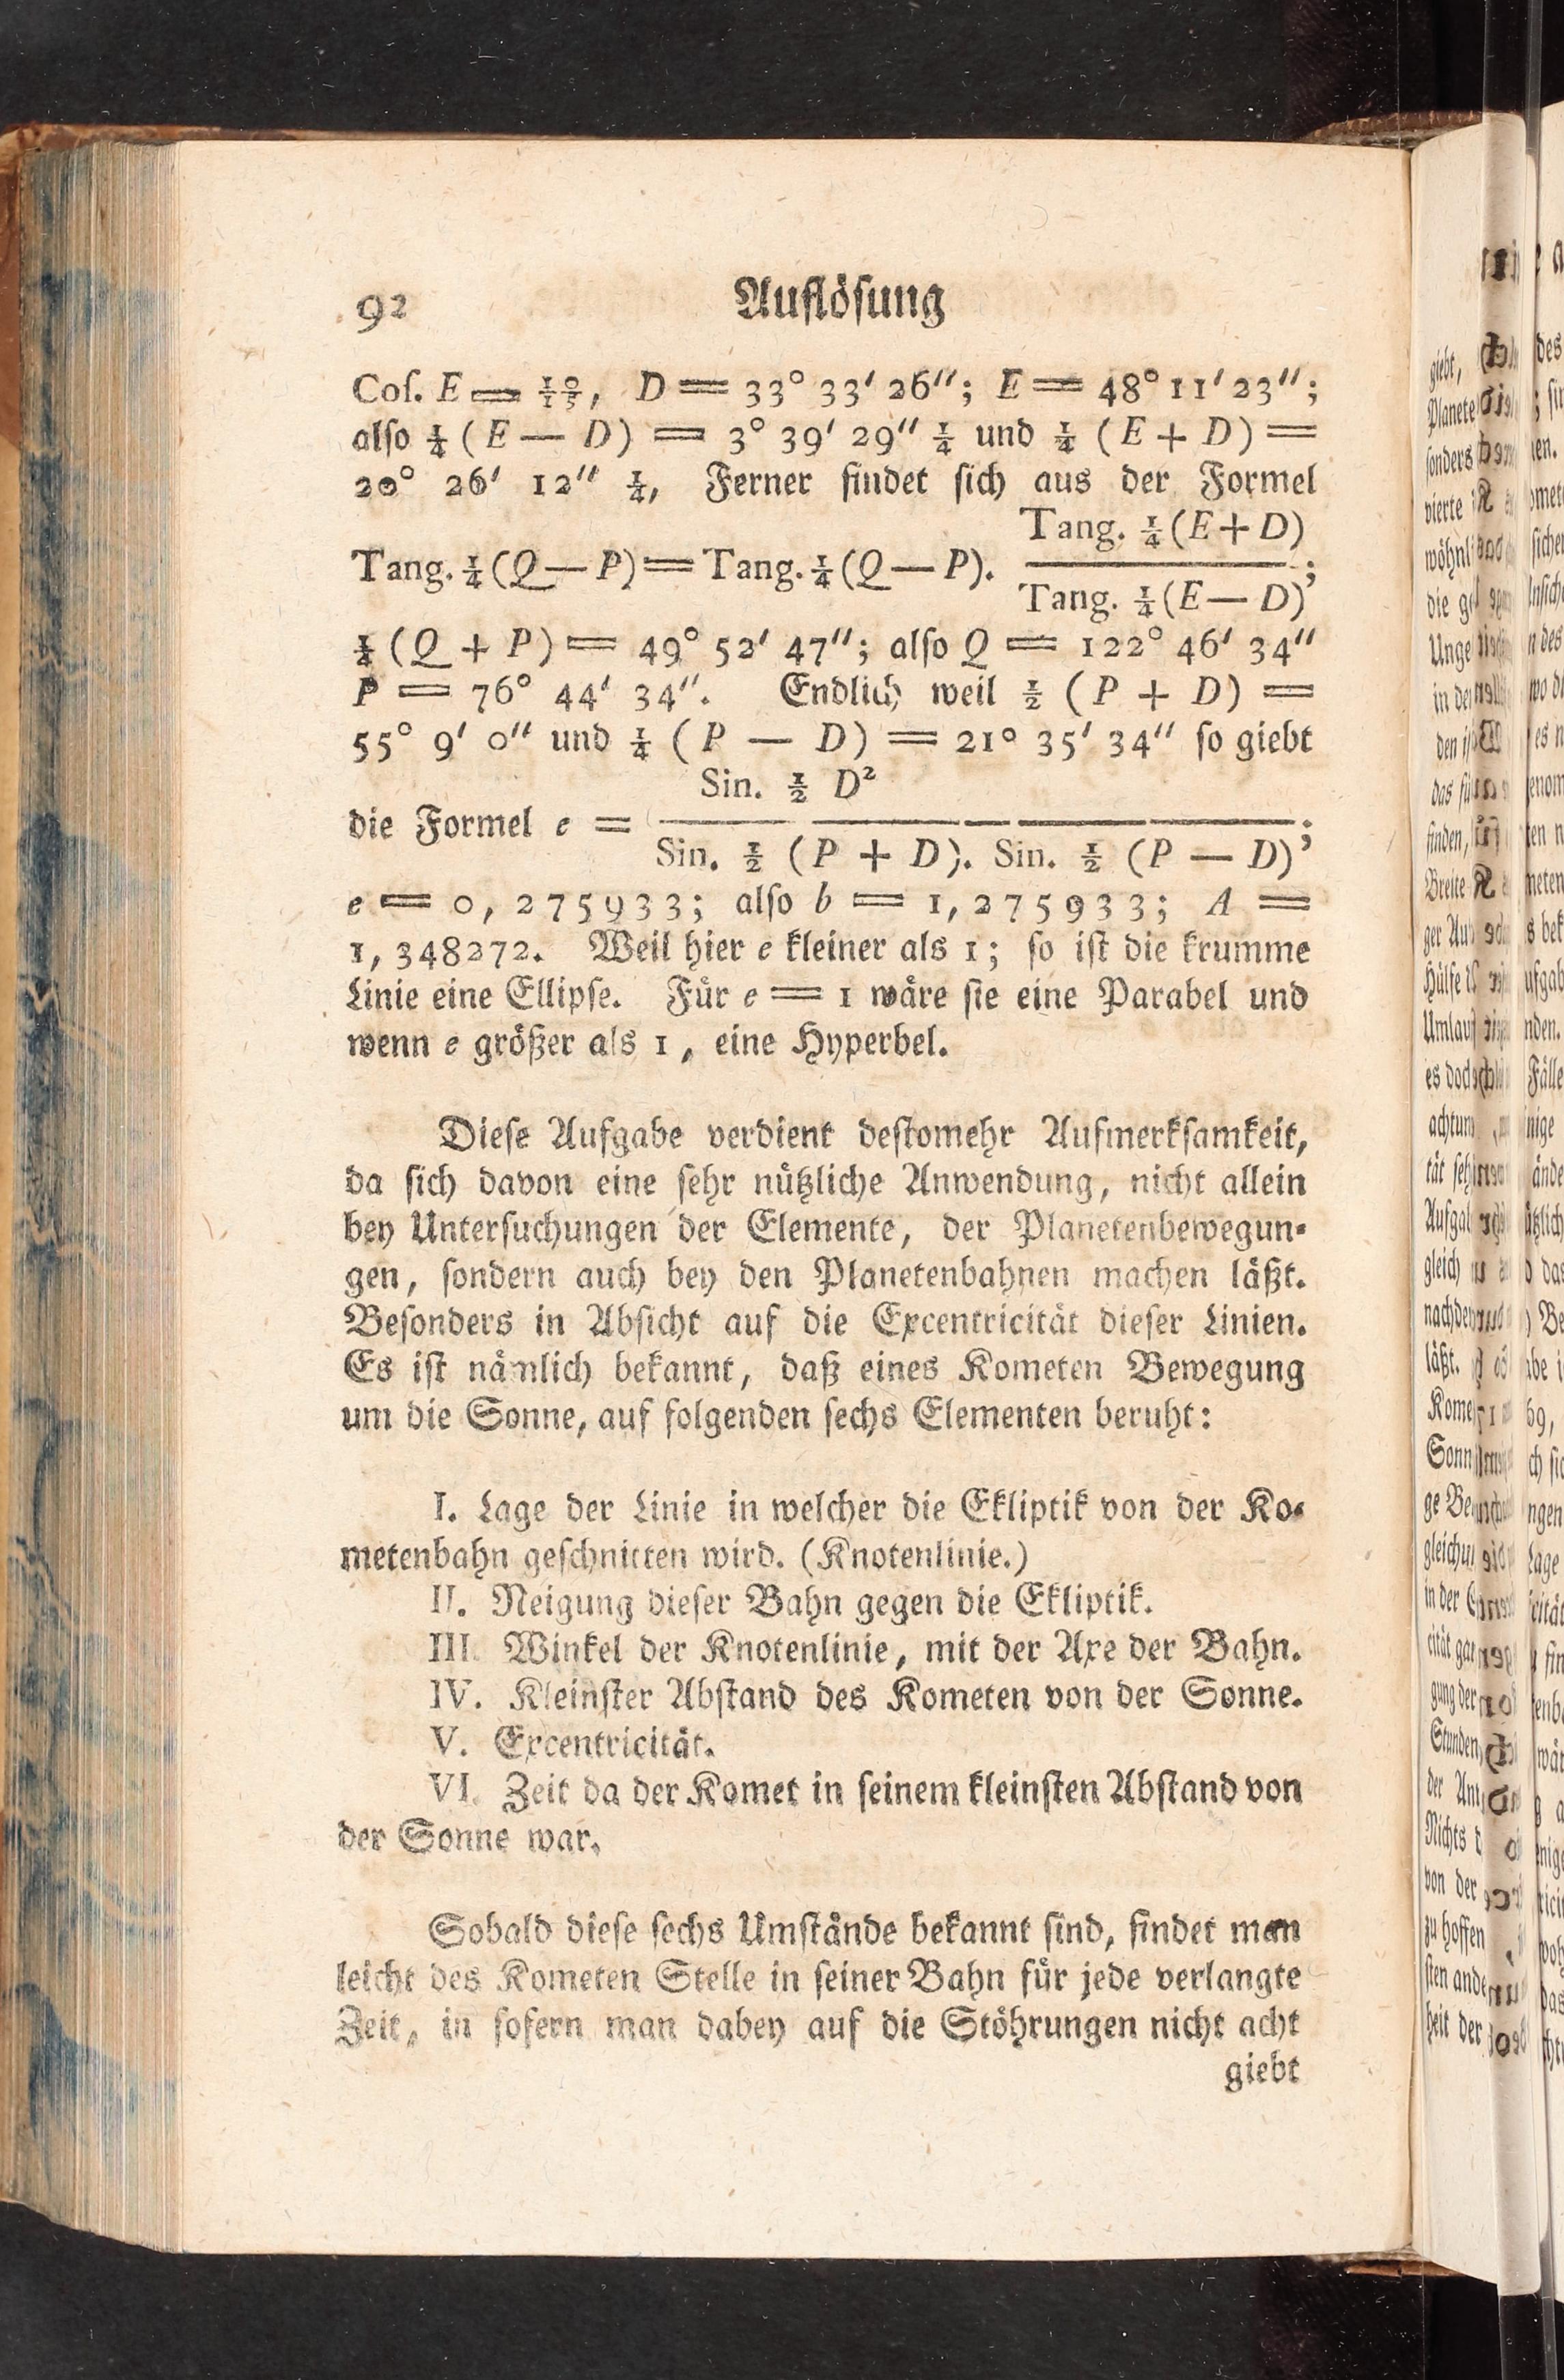 92 Auflösung
Coſ. E = 10/15, D = 33° 33′ 26″; E = 48° 11′ 23″;
alſo ¼ (E — D) = 3° 39′ 29″ ¼ und ¼ (E + D) =
20° 26′ 12″ ¼, Ferner findet ſich aus der Formel
Tang. ¼ (Q — P) = Tang. ¼ (Q — P). Tang. ¼ (E + D) / Tang. ¼ (E — D);
¼ (Q + P) = 49° 52′ 47″; alſo Q = 122° 46′ 34″
P = 76° 44′ 34″. Endlich weil ½ (P + D) =
55° 9′ 0″ und ¼ (P — D) = 21° 35′ 34″ ſo giebt
die Formel e = Sin. ½ D² / Sin. ½ (P + D). Sin. ½ (P — D);
e = 0,275933; alſo b = 1,275933; A =
1,348272. Weil hier e kleiner als 1; ſo iſt die krumme
Linie eine Ellipſe. Für e = 1 wäre ſie eine Parabel und
wenn e größer als 1, eine Hyperbel.
Dieſe Aufgabe verdient deſtomehr Aufmerkſamkeit,
da ſich davon eine ſehr nützliche Anwendung, nicht allein
bey Unterſuchungen der Elemente, der Planetenbewegun-
gen, ſondern auch bey den Planetenbahnen machen läßt.
Beſonders in Abſicht auf die Excentricität dieſer Linien.
Es iſt nämlich bekannt, daß eines Kometen Bewegung
um die Sonne, auf folgenden ſechs Elementen beruht:
I. Lage der Linie in welcher die Ekliptik von der Ko-
metenbahn geſchnitten wird. (Knotenlinie.)
II. Neigung dieſer Bahn gegen die Ekliptik.
III. Winkel der Knotenlinie, mit der Axe der Bahn.
IV. Kleinſter Abſtand des Kometen von der Sonne.
V. Excentricität.
VI. Zeit da der Komet in ſeinem kleinſten Abſtand von
der Sonne war.
Sobald dieſe ſechs Umſtände bekannt ſind, findet man
leicht des Kometen Stelle in ſeiner Bahn für jede verlangte
Zeit, in ſofern man dabey auf die Stöhrungen nicht acht
giebt